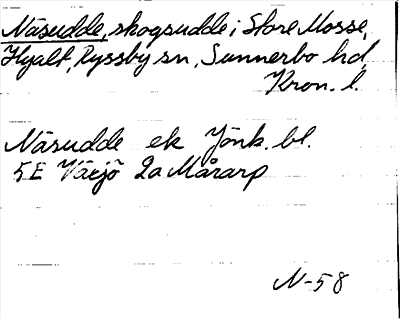 Näsudde, skogsudde i Store Mosse,
Hjält, Ryssby sn, Sunnerbo hd,
Kron. l.
Näsudde ek Jönk. bl.
5E Växjö 2a Mårarp
N-58